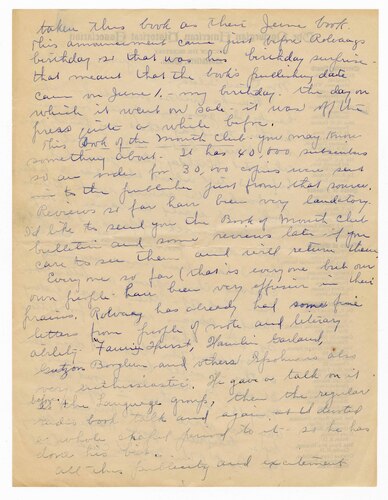 taken this book as their June book.
This announcement came just before Rolvaag's
birthday so that was his birthday surprise
that meant that the book's publishing date
came on June 1. - my birthday. the day on
which it went on sale - it was off the
press quite a while before.
This Book of the Month Club - you may know
something about. It has 40,000 subscribers
so an order for 30,000 copies were sent
in to the publisher just from that source.
Reviews so far have been very laudatory.
I'd like to send you the Book of Month Club
bulletin and some reviews later if you
care to see them and will return them
Everyone so far (that is everyone but our
own people - have been very effusive in their
praises. Rolvaag has already had some fine
letters from people of note and literary
ability - Fannie Hurst, Hamlin Garland,
Gutzon Borglum and others. is also
very enthusiastic. He gave a talk on it
before the Language group, then the regular
radio book talk and again at devoted
a whole period to it - so he has
done his bit.
All this publicity and excitement